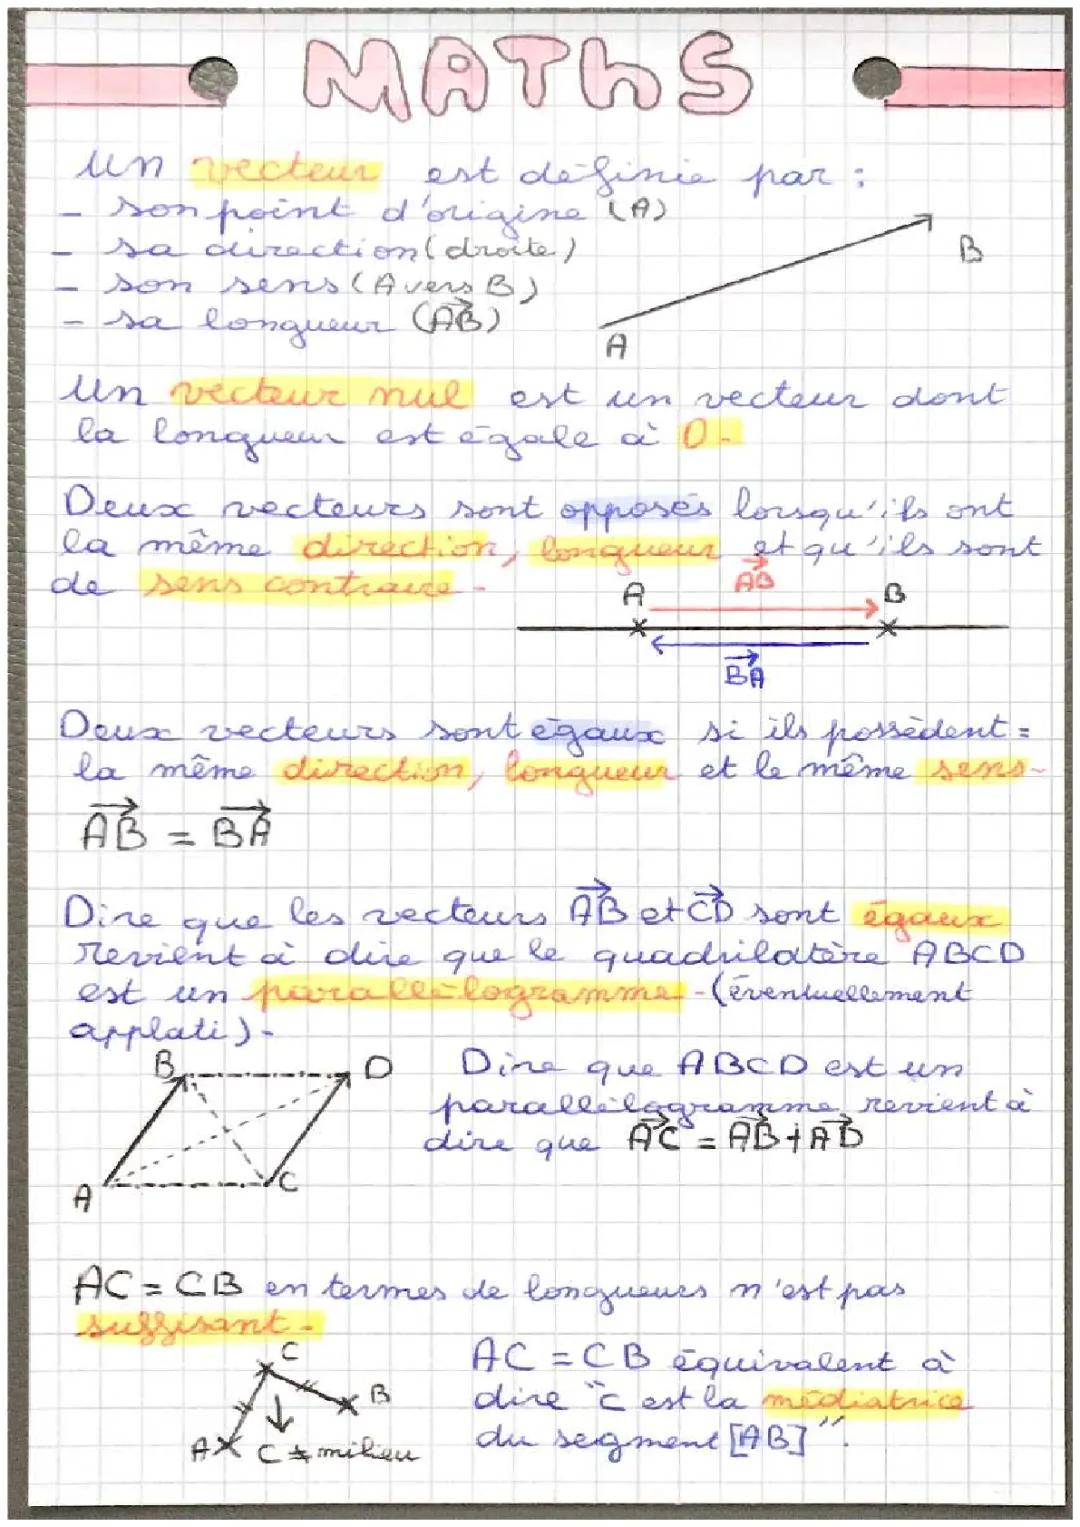 MATHS
Un vecteur est définie par :
- son point d'origine (A)
- sa direction (droite)
- son sens (A vers B)
- sa longueur (A⃗B⃗)
A
B
Un vecteur nul est un vecteur dont
la longueur est égale à 0.
Deux vecteurs sont opposés lorsqu'ils ont
la même direction, longueur et qu'ils sont
de sens contraire.
A A⃗B⃗ B
B⃗A⃗
Deux vecteurs sont égaux si ils possèdent =
la même direction, longueur et le même sens.
A⃗B⃗ = B⃗A⃗
Dire que les vecteurs A⃗B⃗ et C⃗D⃗ sont égaux
revient à dire que le quadrilatère ABCD
est un parallélogramme - (éventuellement
applati).
B D
A C
Dire que ABCD est un
parallélogramme revient à
dire que A⃗C⃗ = A⃗B⃗ + A⃗D⃗
AC = CB en termes de longueurs n'est pas
suffisant.
C
B
A C ≠ milieu
AC = CB équivalent à
dire "c est la médiatrice
du segment [AB]".